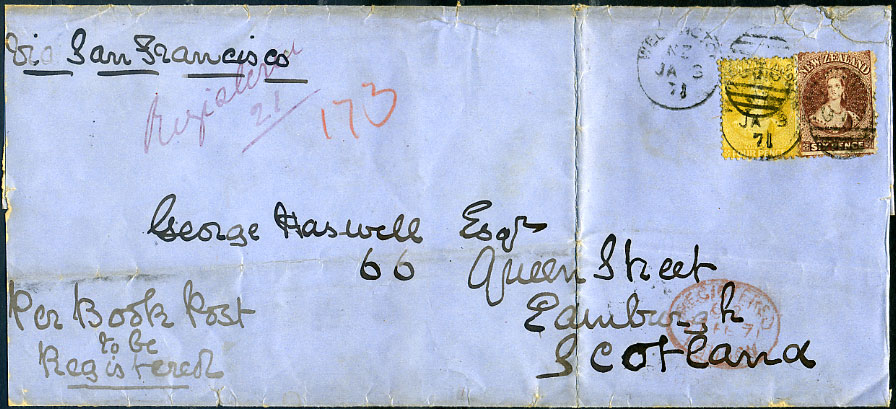 Via San Francisco
Registered
21
173
WELLINGTON
NZ
JA 3
71
JA 3
71
FOUR PENCE
NEW ZEALAND
SIXPENCE
George Haswell Esqr
66 Queen Street
Edinburgh
Scotland
Per Book Post
to be
Registered
REGISTERED
71